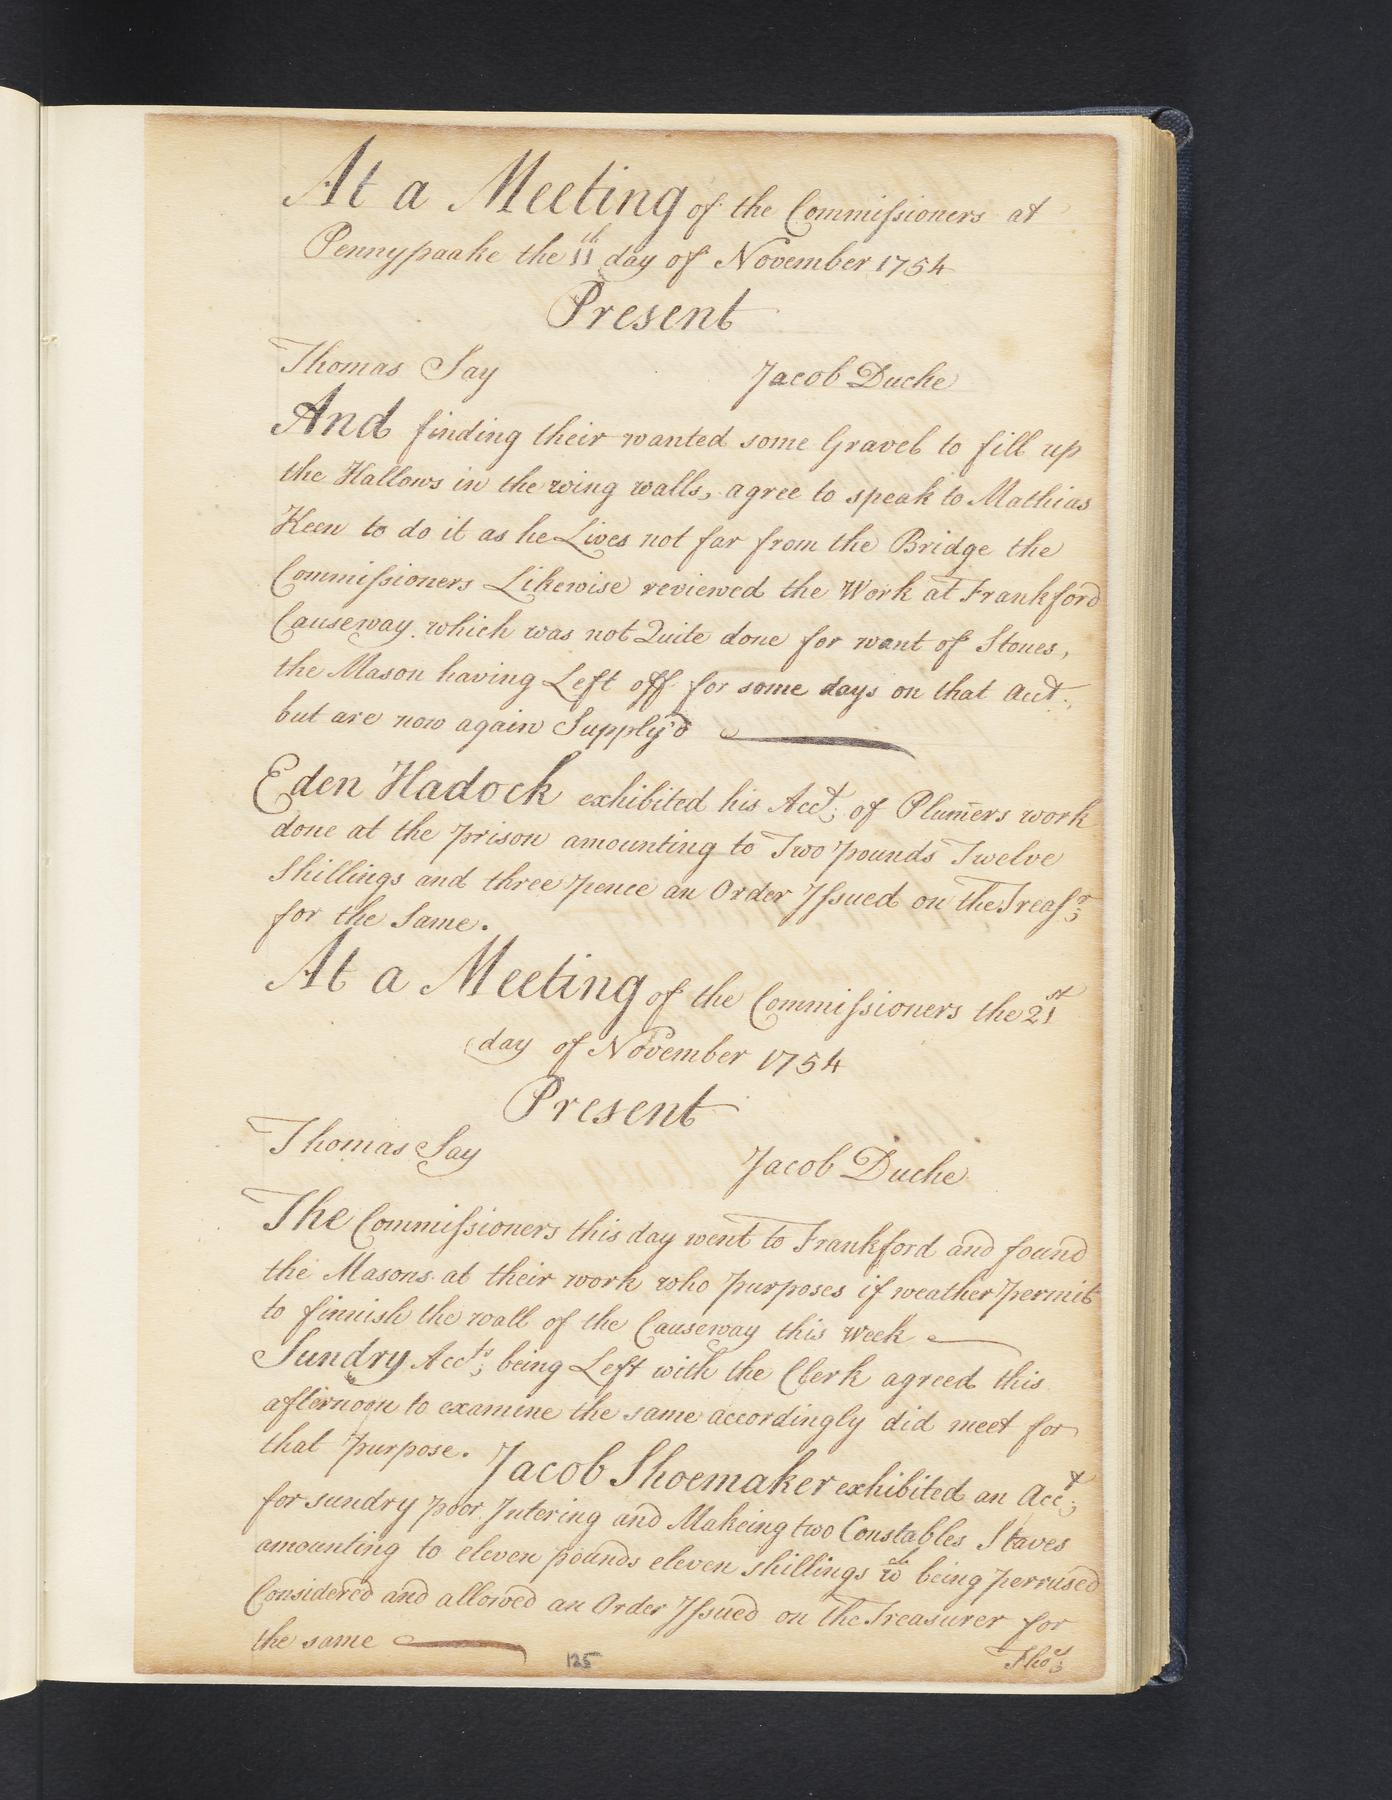 At a Meeting of the Commissioners at
Pennypaake the 11th day of November 1754
Present
Thomas Say Jacob Duche
And finding their wanted some Gravel to fill up
the Hallows in the wing walls, agree to speak to Mathias
Keen to do it as he Lives not far from the Bridge the
Commissioners Likewise reviewed the Work at Frankford
Causeway which was not Quite done for want of Stones,
the Mason having Left off for some days on that Acct.
but are now again Supply'd
Eden Hadock exhibited his Acct. of Plum̄ers work
done at the prison amounting to Two pounds Twelve
Shillings and three pence an Order Issued on the Treasr.
for the Same.
At a Meeting of the Commissioners the 21st
day of November 1754
Present
Thomas Say Jacob Duche
The Commissioners this day went to Frankford and found
the Masons at their work who purposes if weather permit
to finnish the wall of the Causeway this Week
Sundry Accts. being Left with the Clerk agreed this
afternoon to examine the same accordingly did meet for
that purpose. Jacob Shoemaker exhibited an Acct.
for sundry poor Intering and Makeing two Constables Staves
amounting to eleven pounds eleven shillings wch being perrused
Considered and allowed an Order Issued on the Treasurer for
the same
Thos.
125